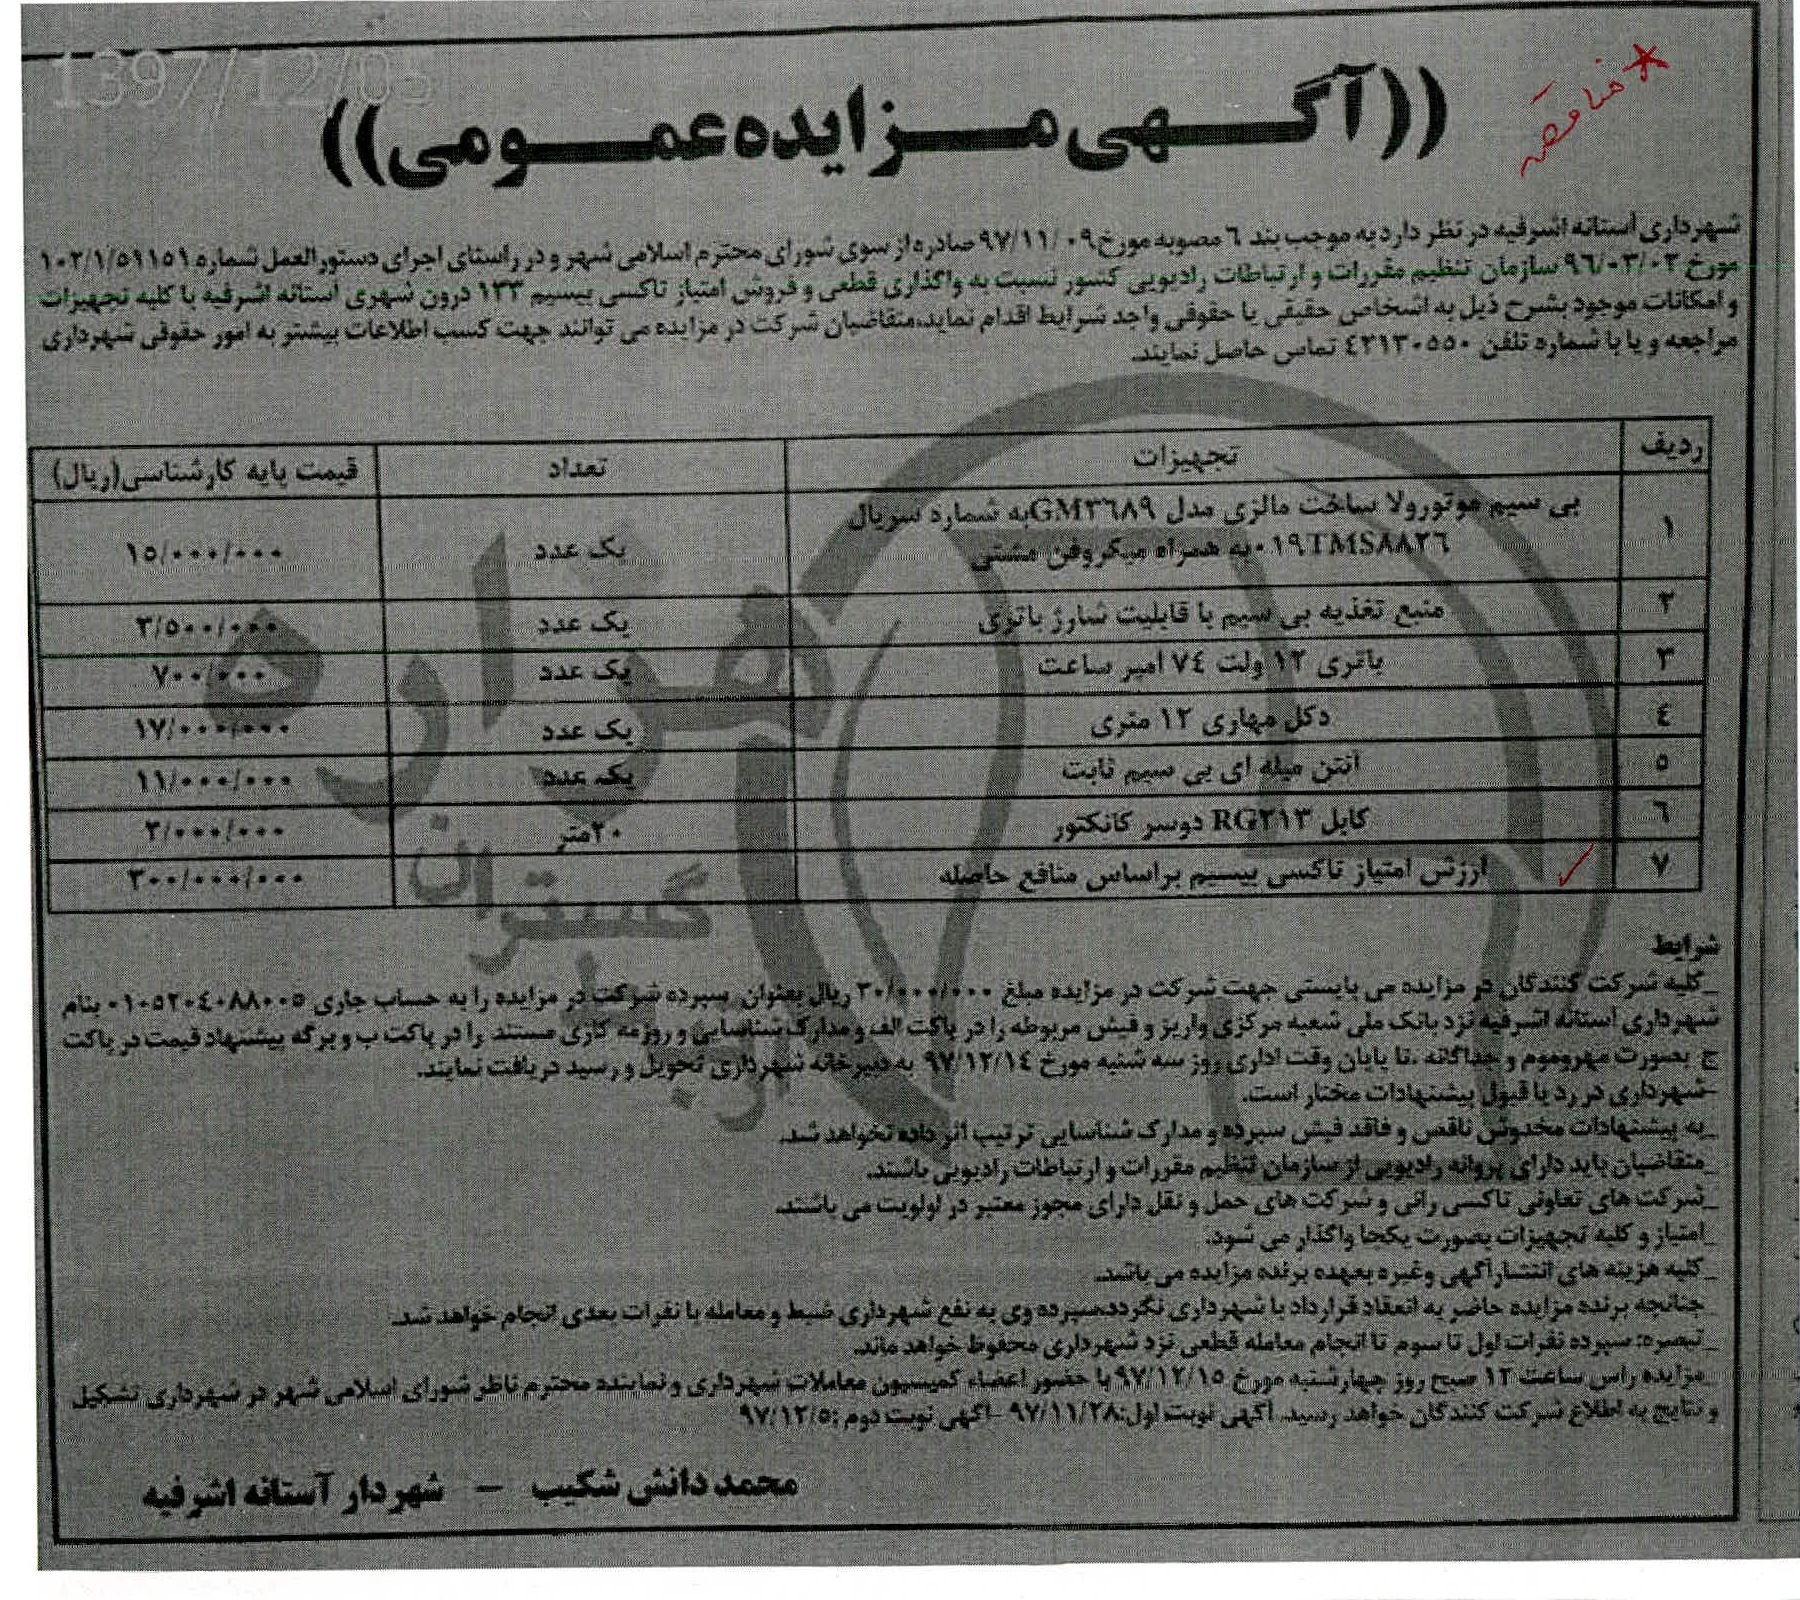 1397/12/05
مناقصه
((آگهی مزایده عمومی))
شهرداری آستانه اشرفیه در نظر دارد به موجب بند ٦ مصوبه مورخ ٩٧/١١/٠٩ صادره از سوی شورای محترم اسلامی شهر و در راستای اجرای دستورالعمل شماره ١٠٢/١/٥١١٥١
مورخ ٩٦/٠٣/٠٢ سازمان تنظیم مقررات و ارتباطات رادیویی کشور نسبت به واگذاری قطعی و فروش امتیاز تاکسی بیسیم ١٣٣ درون شهری آستانه اشرفیه با کلیه تجهیزات
و امکانات موجود بشرح ذیل به اشخاص حقیقی یا حقوقی واجد شرایط اقدام نماید،متقاضیان شرکت در مزایده می توانند جهت کسب اطلاعات بیشتر به امور حقوقی شهرداری
مراجعه و یا با شماره تلفن ٤٢١٣٠٥٥٠ تماس حاصل نمایند.
ردیف تجهیزات تعداد قیمت پایه کارشناسی(ریال)
١ بی سیم موتورولا ساخت مالزی مدل GM٣٦٨٩به شماره سریال
٠١٩TMS٨٨٢٦به همراه میکروفن مشتی یک عدد ١٥/٠٠٠/٠٠٠
٢ منبع تغذیه بی سیم با قابلیت شارژ باتری یک عدد ٣/٥٠٠/٠٠٠
٣ باتری ١٢ ولت ٧٤ امپر ساعت یک عدد ٧٠٠/٠٠٠
٤ دکل مهاری ١٢ متری یک عدد ١٧/٠٠٠/٠٠٠
٥ انتن میله ای بی سیم ثابت یک عدد ١١/٠٠٠/٠٠٠
٦ کابل RG٢١٣ دوسر کانکتور ٢٠متر ٢/٠٠٠/٠٠٠
٧ ارزش امتیاز تاکسی بیسیم براساس منافع حاصله ٣٠٠/٠٠٠/٠٠٠
هزاره
گستران
شرایط
_کلیه شرکت کنندگان در مزایده می بایستی جهت شرکت در مزایده مبلغ ٢٠/٠٠٠/٠٠٠ ریال بعنوان سپرده شرکت در مزایده را به حساب جاری ٠١٠٥٢٠٤٠٨٨٠٠٥ بنام
شهرداری آستانه اشرفیه نزد بانک ملی شعبه مرکزی واریز و فیش مربوطه را در پاکت الف و مدارک شناسایی و روزمه کاری مستند را در پاکت ب و برگه پیشنهاد قیمت در پاکت
ج بصورت مهروموم و جداگانه ،تا پایان وقت اداری روز سه شنبه مورخ ٩٧/١٢/١٤ به دبیرخانه شهرداری تحویل و رسید دریافت نمایند.
-شهرداری در رد یا قبول پیشنهادات مختار است.
_به پیشنهادات مخدوش ناقص و فاقد فیش سپرده و مدارک شناسایی ترتیب اثر داده نخواهد شد.
_متقاضیان باید دارای پروانه رادیویی از سازمان تنظیم مقررات و ارتباطات رادیویی باشند.
_شرکت های تعاونی تاکسی رانی و شرکت های حمل و نقل دارای مجوز معتبر در اولویت می باشند.
_امتیاز و کلیه تجهیزات بصورت یکجا واگذار می شود.
_کلیه هزینه های انتشارآگهی وغیره بعهده برنده مزایده می باشد.
_چنانچه برنده مزایده حاضر به انعقاد قرارداد با شهرداری نگردد،سپرده وی به نفع شهرداری ضبط و معامله با نفرات بعدی انجام خواهد شد.
_تبصره: سپرده نفرات اول تا سوم تا انجام معامله قطعی نزد شهرداری محفوظ خواهد ماند.
_مزایده راس ساعت ١٢ صبح روز چهارشنبه مورخ ٩٧/١٢/١٥ با حضور اعضاء کمیسیون معاملات شهرداری و نماینده محترم ناظر شورای اسلامی شهر در شهرداری تشکیل
و نتایج به اطلاع شرکت کنندگان خواهد رسید. آگهی نوبت اول:٩٧/١١/٢٨ -آگهی نوبت دوم :٩٧/١٢/٥
محمد دانش شکیب – شهردار آستانه اشرفیه